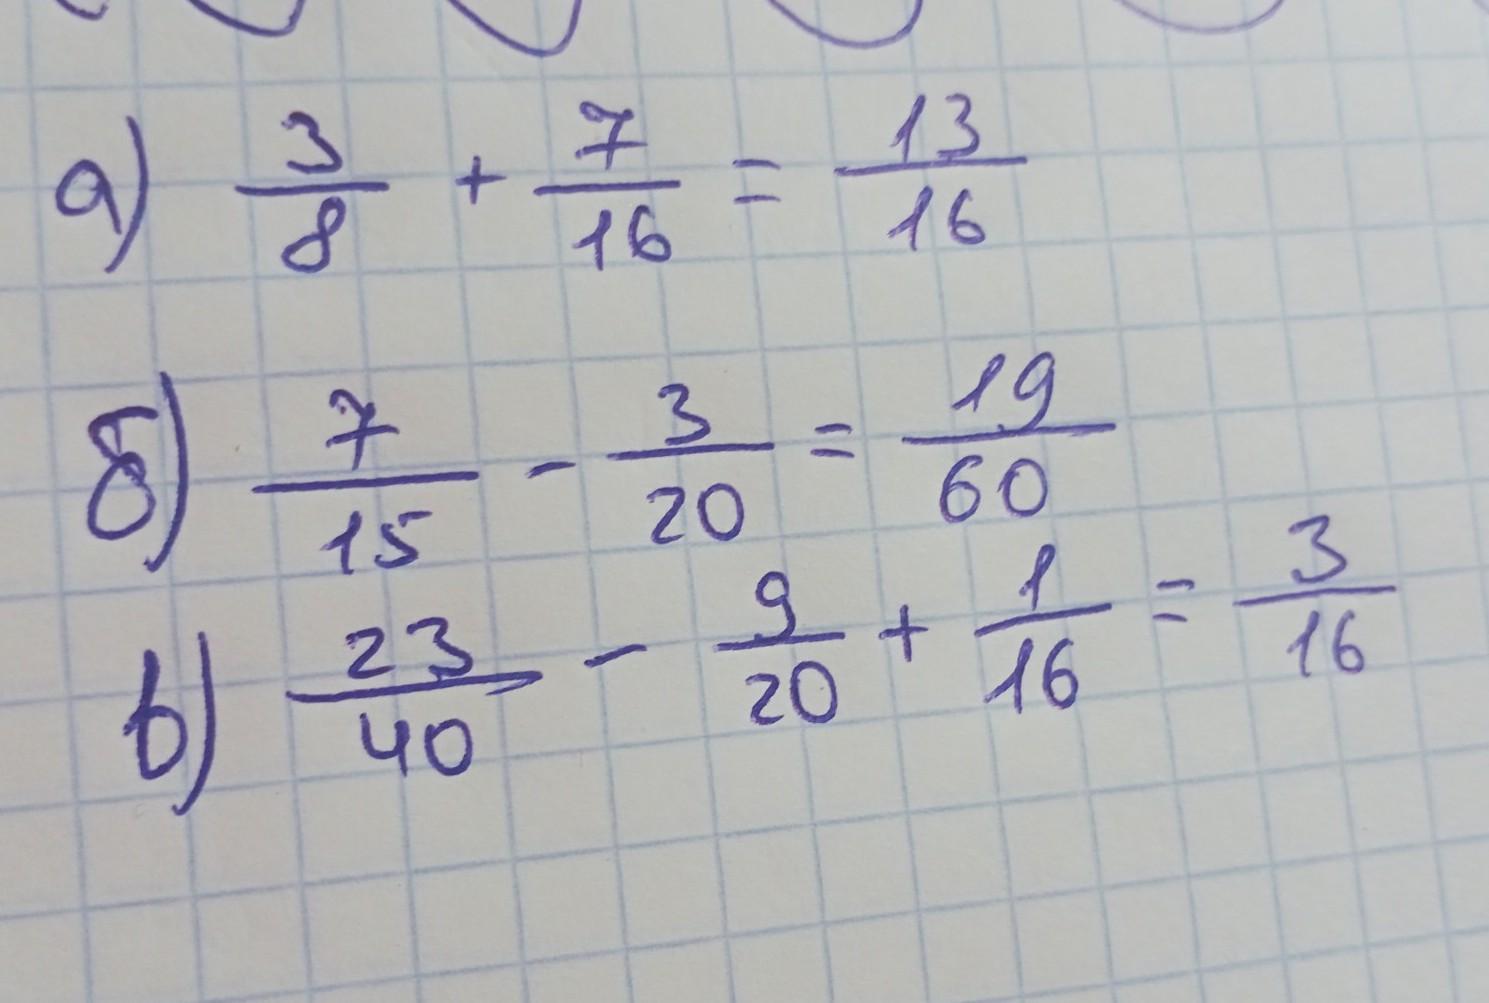 а) 3/8 + 7/16 = 13/16
б) 7/15 - 3/20 = 19/60
в) 23/40 - 9/20 + 1/16 = 3/16